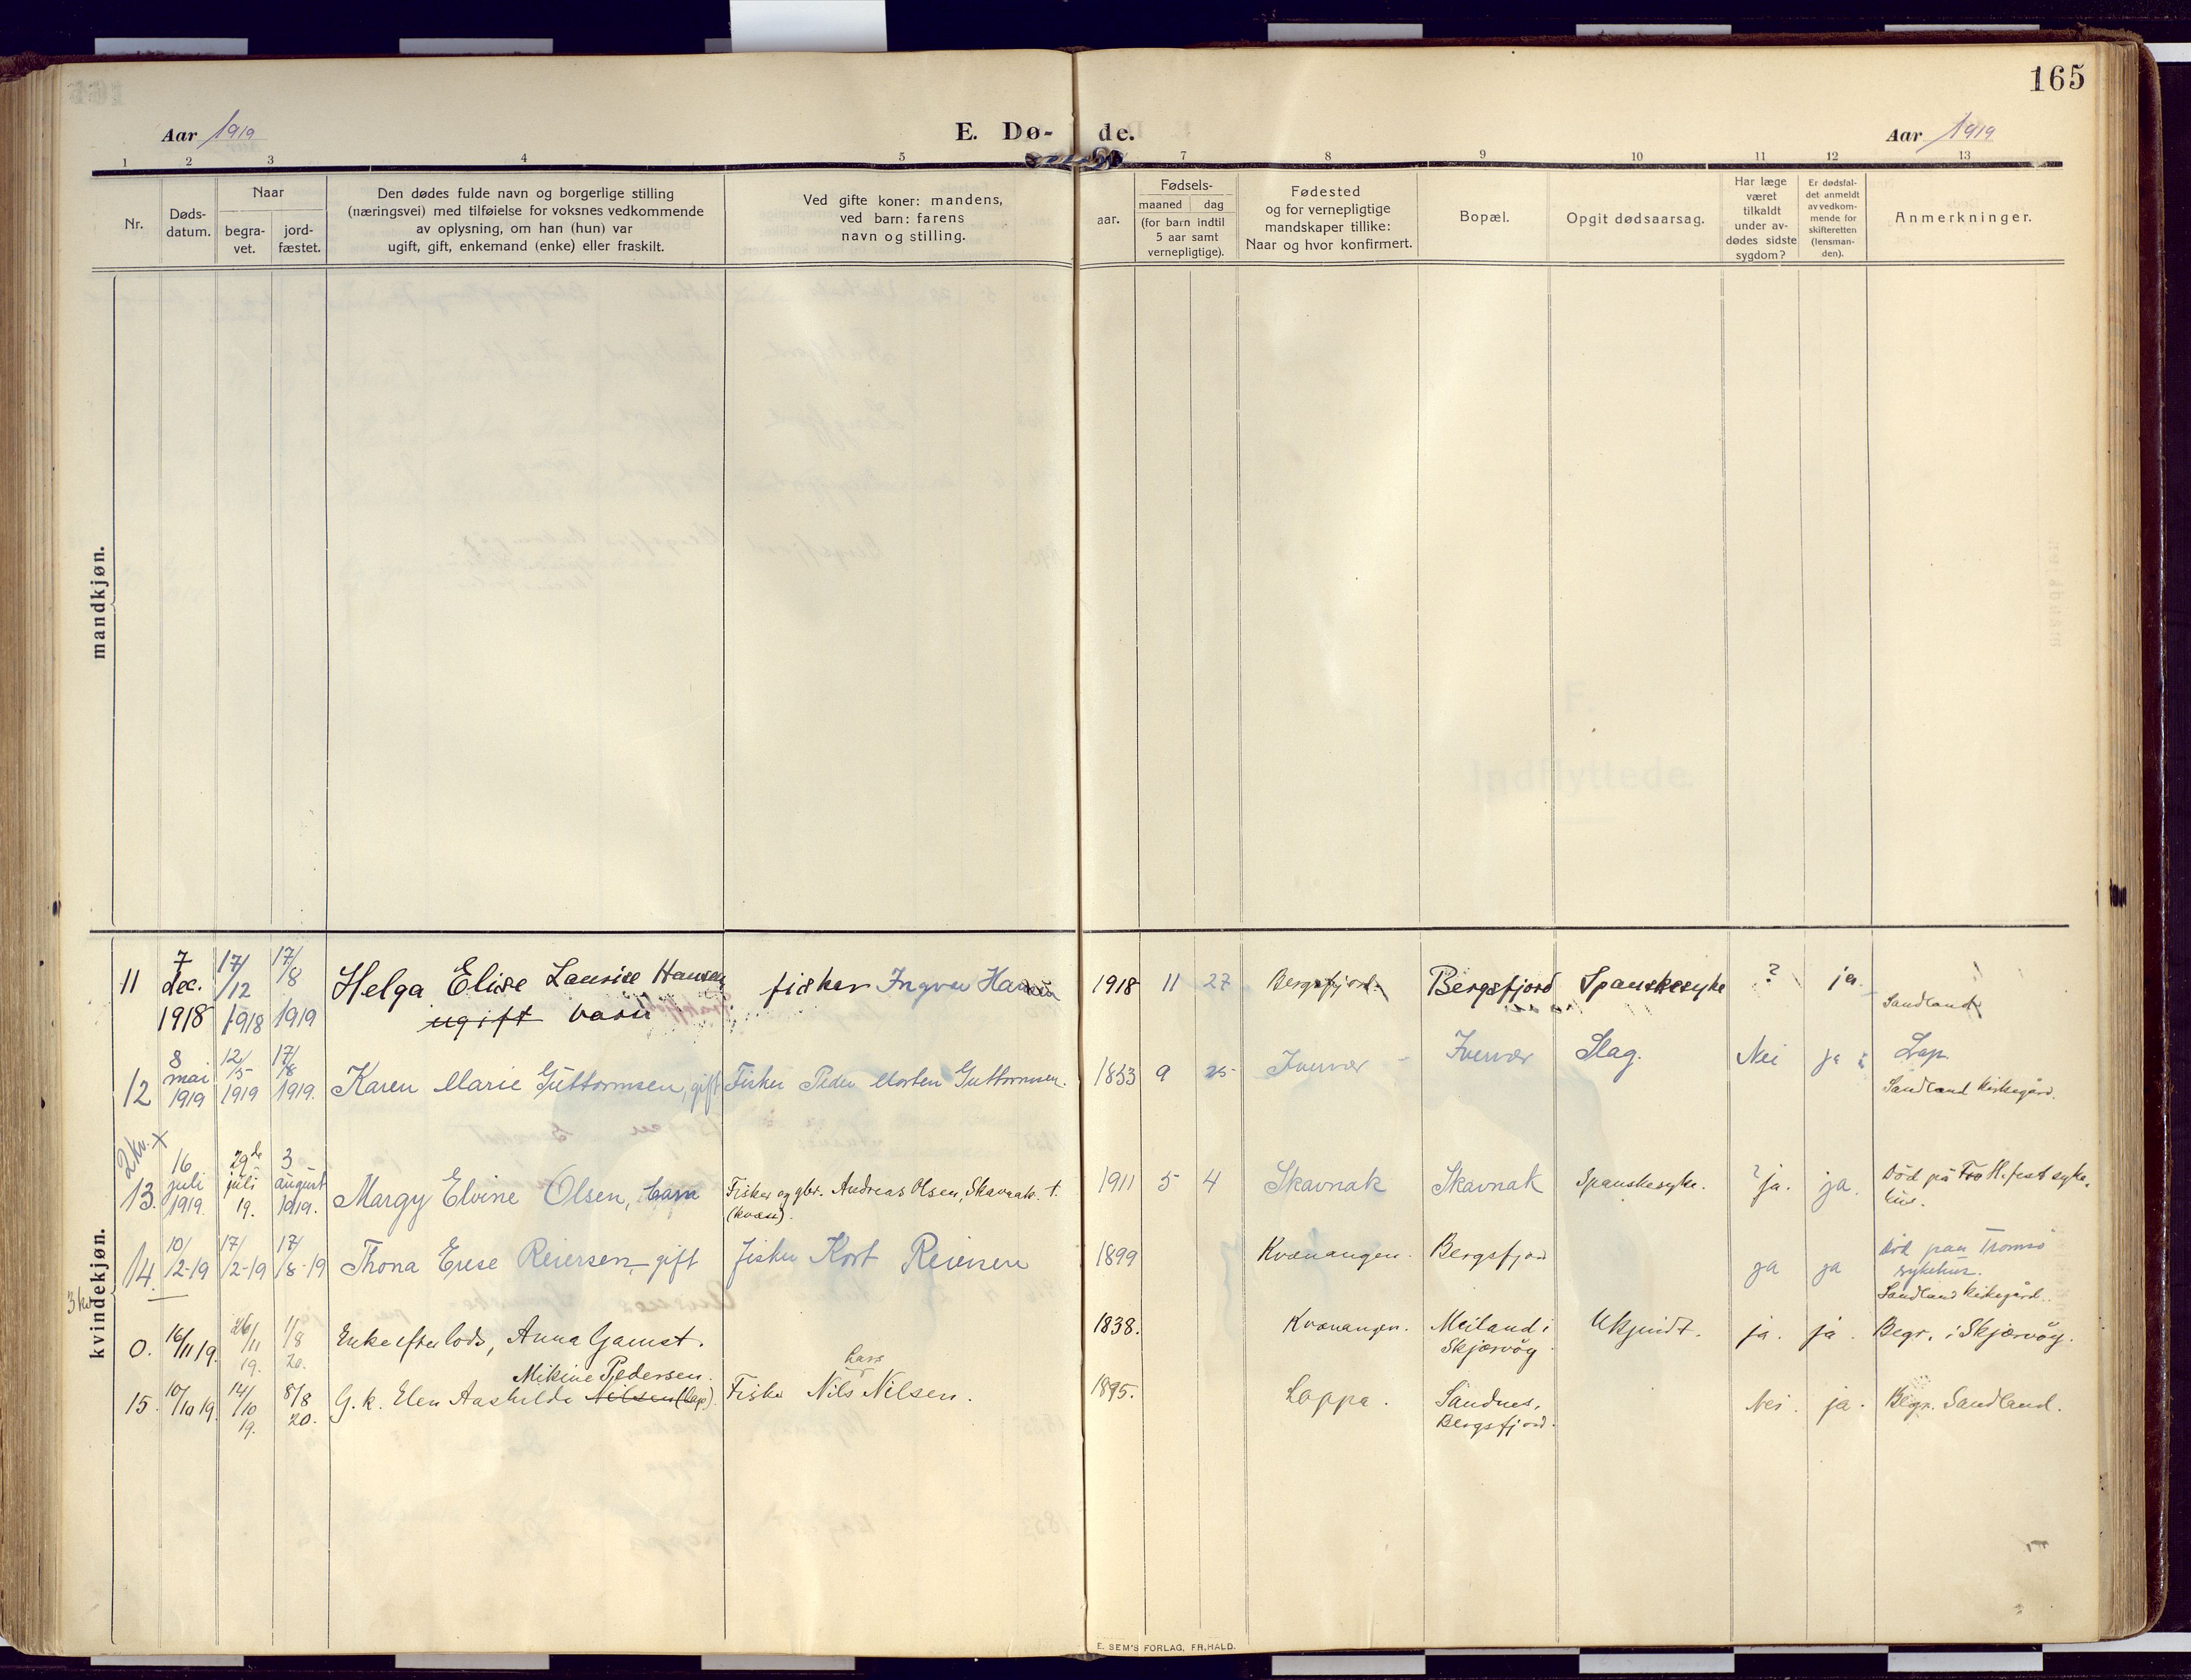 165
Aar 1919
E. Dø- de.
Aar 1919
1 2 3 4 5 7 8 9 10 11 12 13
Nr.
Døds-
datum.
Naar
begra-
vet.
jord-
fæstet.
Den dødes fulde navn og borgerlige stilling
(næringsvei) med tilføielse for voksnes vedkommende
av oplysning, om han (hun) var
ugift, gift, enkemand (enke) eller fraskilt.
Ved gifte koner: mandens,
ved barn: farens
navn og stilling.
aar.
Fødsels-
maaned dag
(for barn indtil
5 aar samt
vernepligtige).
Fødested
og for vernepligtige
mandskaper tillike:
Naar og hvor konfirmert.
Bopæl.
Opgit dødsaarsag.
Har læge
været
tilkaldt
under av-
dødes sidste
sygdom?
Er dødsfal-
det anmeldt
av vedkom-
mende for
skifteretten
(lensman-
den).
Anmerkninger.
mandkjøn.
kvindekjøn.
11
7
dec.
1918
17/
/12
1918
17/
/8
1919
Helga Elise Laurise Hansen
ugift barn
fisker Ingvar Hansen
1918 11 27
Bergsfjord
Bergsfjord
Spanskesyke
?
ja
Sandland
12
8
mai
1919
12/
/5
1919
17/
/8
1919.
Karen Marie Guttormsen, gift
Fisker Peder Morten Guttormsen.
1853 9 25
Iverver
Iverver
Slag.
Nei
ja
Lap
Sandland kirkegård.
2 kv. X
13.
16
juli
1919.
29de
juli
19.
3
august
1919.
Margy Elvine Olsen, barn
Fisker og gbr. Andreas Olsen, Skavnak. †.
(kvæn).
1911 5 4
Skavnak
Skavnak
Spanskesyke.
? ja.
ja.
Død på H.fest syke-
hus.
14.
10/
/2-19
17/
/2-19
17/
/8-19
Thona Erese Reiersen, gift
fisker Kort Reiersen
1899
Kvænangen.
Bergsfjord
ja
ja
Død paa Tromsø
sykehus.
Sandland kirkegård.
3 kv
0.
16/11 19.
26/
/11
19.
11
/8
20.
Enke efter lods, Anna Gamst.
1838.
Kvænangen.
Meiland i
Skjærvøy.
Ukjendt.
ja.
ja.
Begr. i Skjærvøy.
15.
10/10 19.
14/
/10
19.
8/8
20.
Mikine Pedersen.
G. k. Elen Aashilde Nilsen (lap).
Lars
Fisker Nils Nilsen.
1895.
Loppa.
Sandnes,
Bergsfjord.
Nei.
ja.
Begr. Sandland.
E. SEM'S FORLAG, FR.HALD.